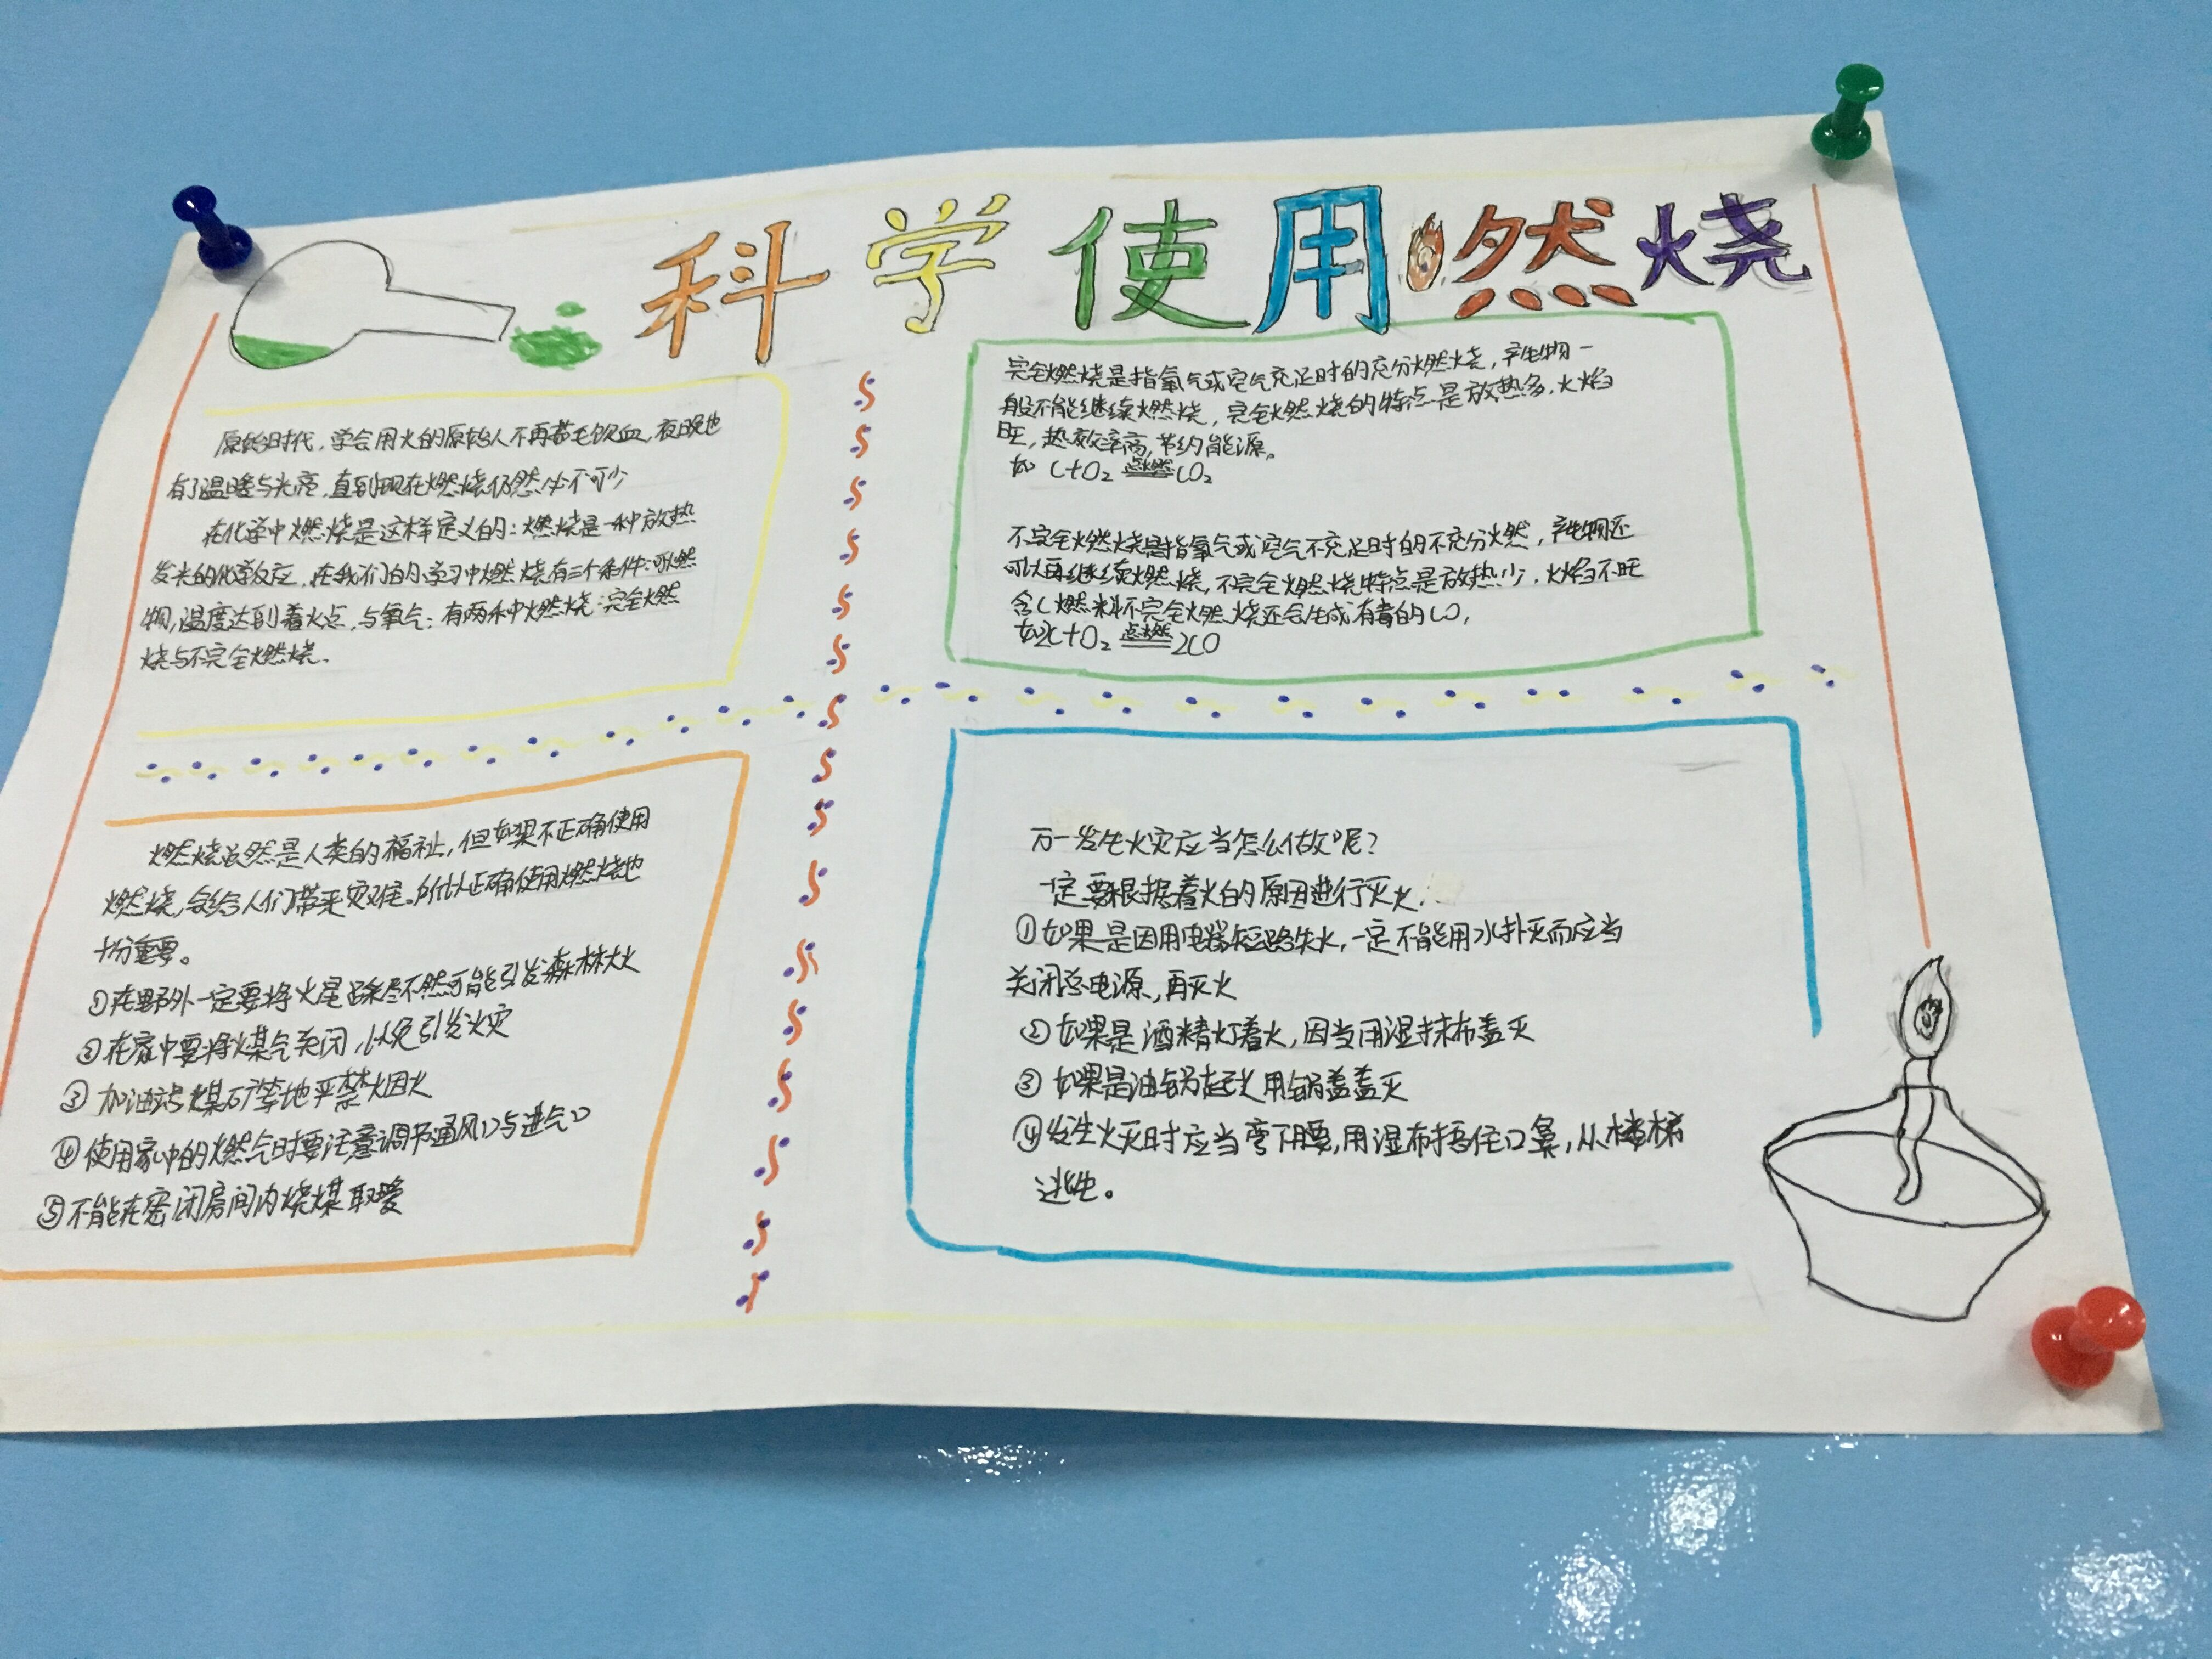 科学使用燃烧
原始时代，学会用火的原始人不再茹毛饮血，夜晚也
有了温暖与光亮，直到现在燃烧仍然必不可少
在化学中燃烧是这样定义的：燃烧是一种放热
发光的化学反应，在我们的学习中燃烧有三个条件：可燃
物，温度达到着火点，与氧气；有两种燃烧：完全燃
烧与不完全燃烧.
完全燃烧是指氧气或空气充足时的充分燃烧，产生物一
般不能继续燃烧，完全燃烧的特点是放热多，火焰
旺，热效率高，节约能源。
如 C+O₂ 点燃 CO₂
不完全燃烧是指氧气或空气不充足时的不充分燃，产生物还
可以再继续燃烧，不完全燃烧特点是放热少，火焰不旺
含C燃料不完全燃烧还会生成有毒的CO，
如2C+O₂ 点燃 2CO
燃烧虽然是人类的福祉，但如果不正确使用
燃烧，会给人们带来灾难。所以正确使用燃烧也
十分重要。
①在野外一定要将火星踩尽不然可能引发森林大火
②在家中要将煤气关闭，以免引发火灾
③加油站煤矿等地严禁烟火
④使用家中的燃气时要注意调节通风口与进气口
⑤不能在密闭房间内烧煤取暖
万一发生火灾应当怎么做呢？
一定要根据着火的原因进行灭火.
①如果是因用电器短路失火，一定不能用水扑灭而应当
关闭总电源，再灭火
②如果是酒精灯着火，因当用湿抹布盖灭
③如果是油锅起火用锅盖盖灭
④发生火灭时应当弯下腰，用湿布捂住口鼻，从楼梯
逃生。